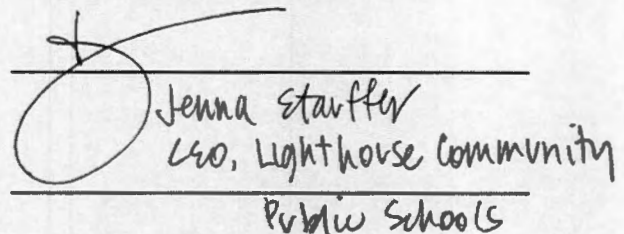 Jenna Stauffer
CEO, Lighthouse Community
Public Schools